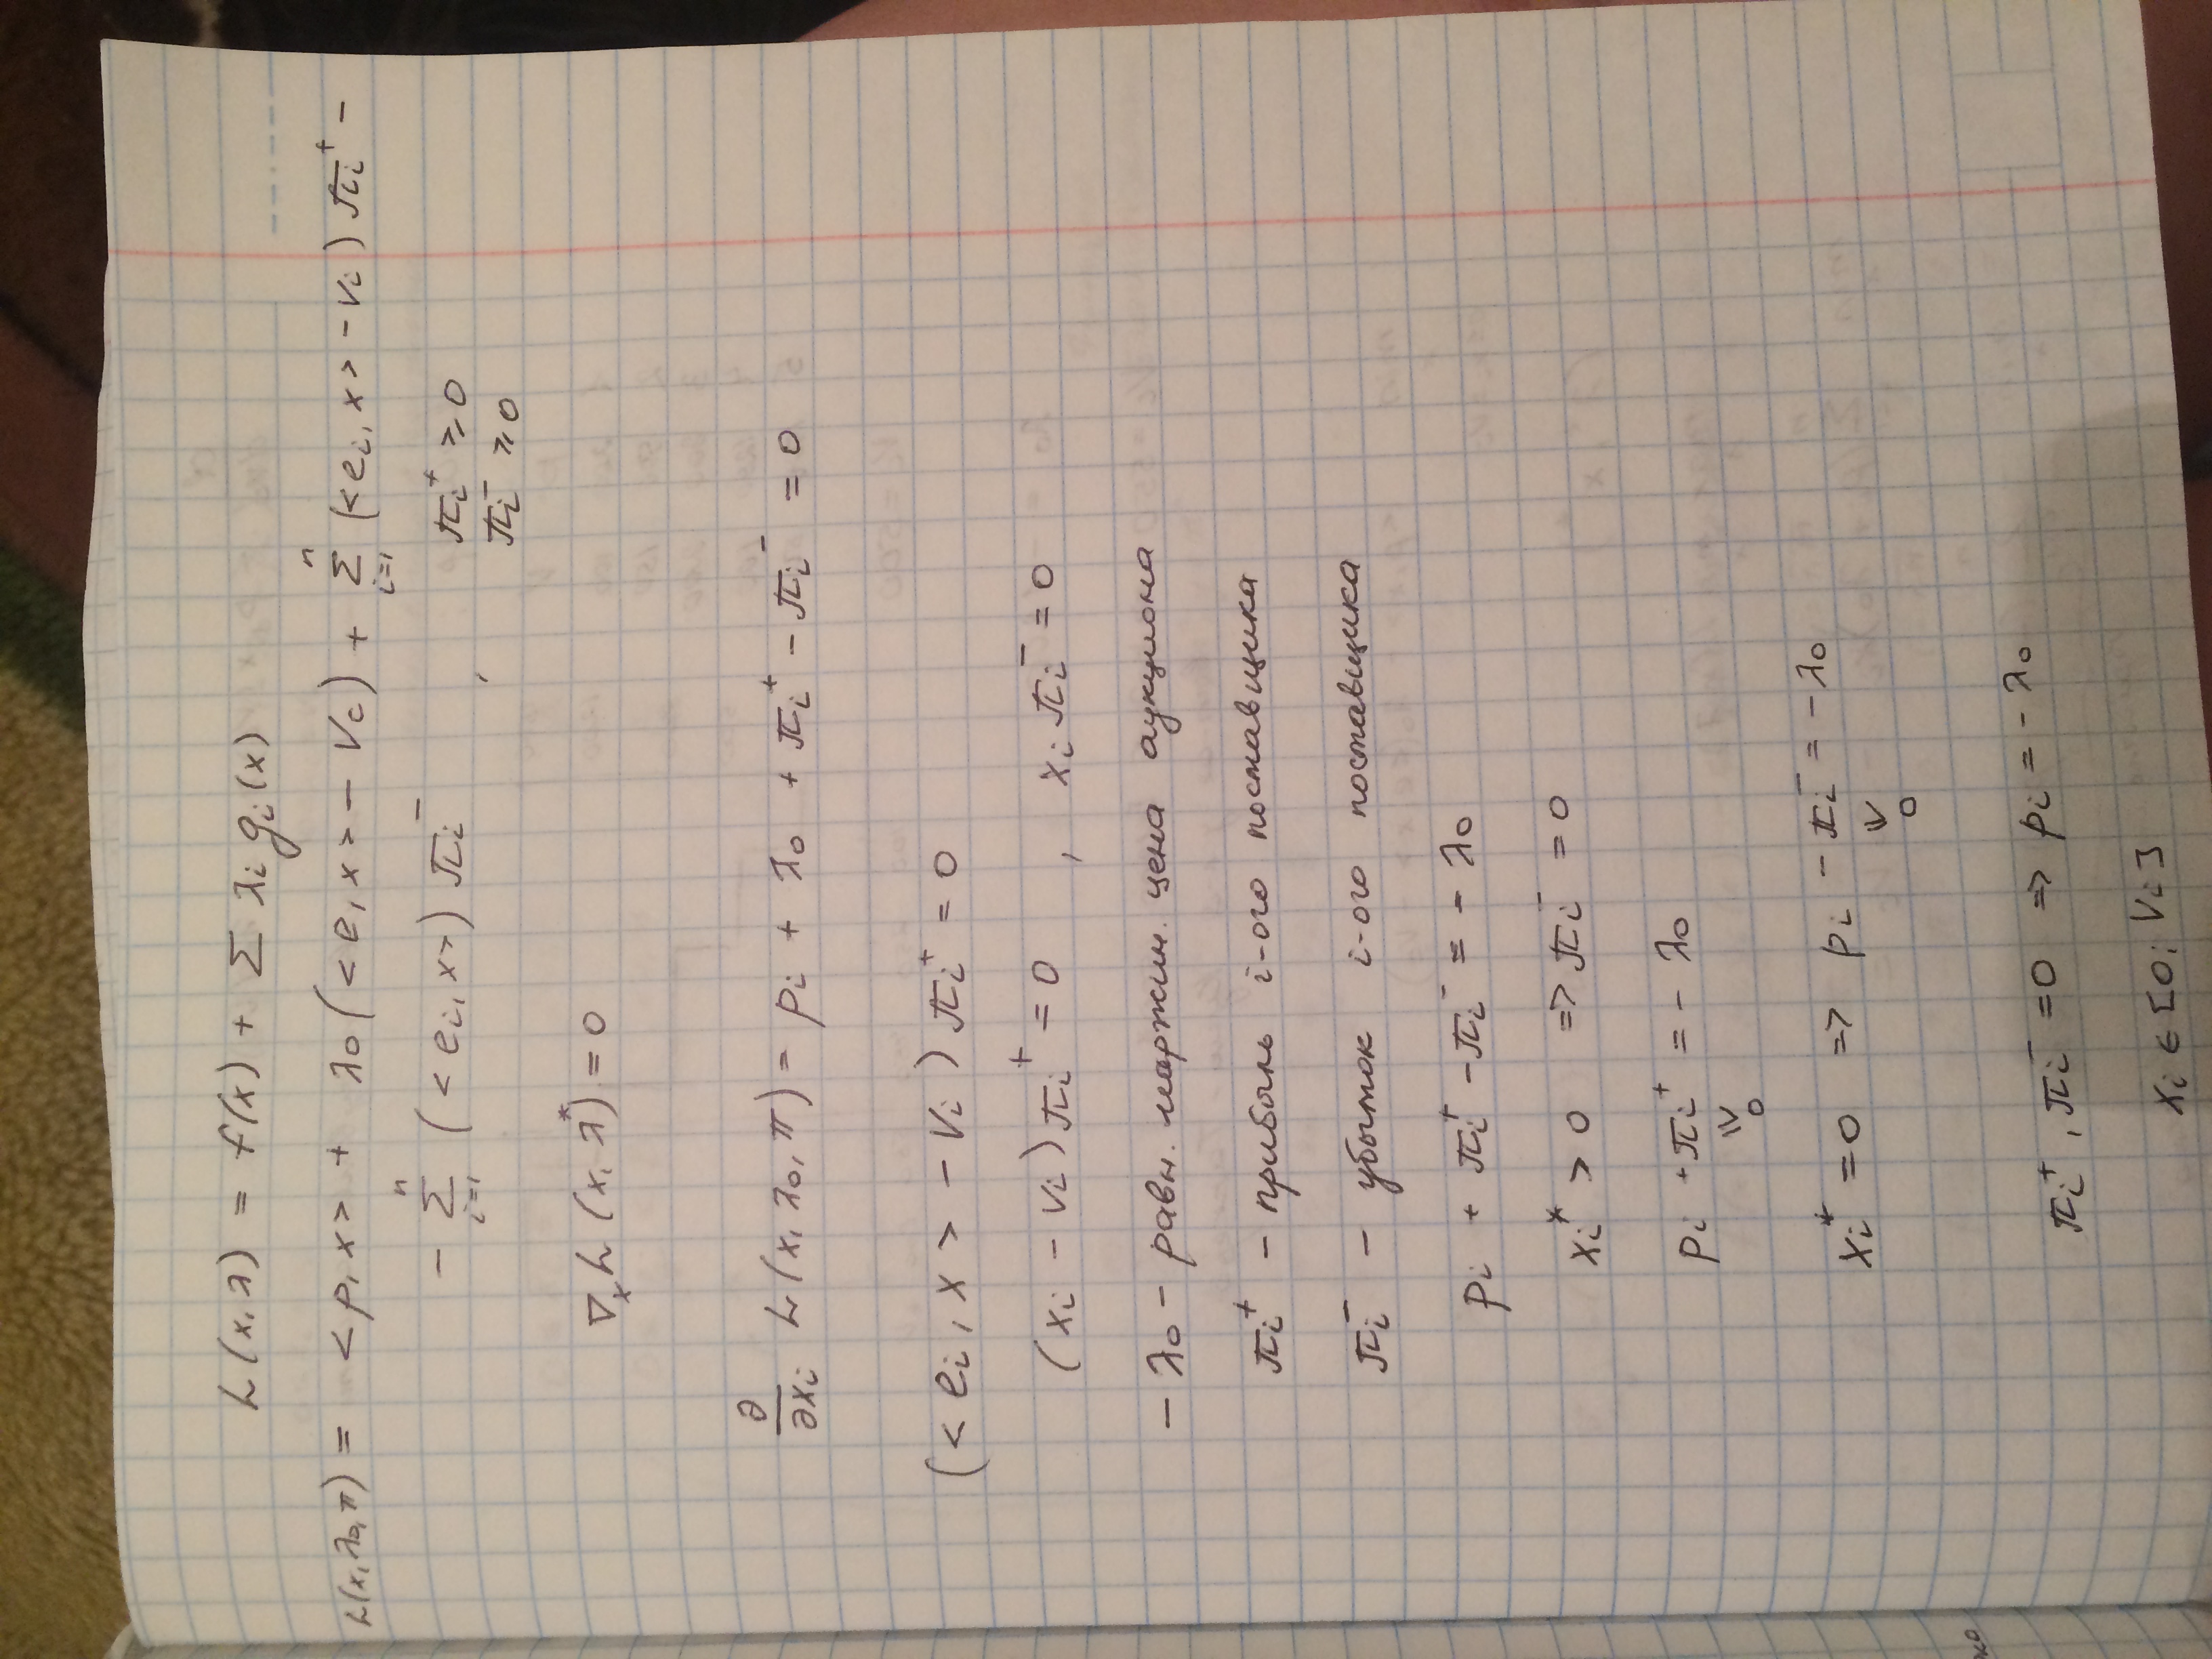 L(x, λ) = f(x) + Σ λi gi(x)
L(x, λ0, π) = <p, x> + λ0(<e, x> - Vc) + Σ_{i=1}^{n} (<ei, x> - Vi) πi⁺ -
- Σ_{i=1}^{n} (<ei, x>) πi⁻ , πi⁺ ≥ 0
πi⁻ ≥ 0
∇x L(x, λ*) = 0
∂/∂xi L(x, λ0, π) = pi + λ0 + πi⁺ - πi⁻ = 0
(<ei, x> - Vi) πi⁺ = 0
(xi - Vi) πi⁺ = 0 , xi πi⁻ = 0
- λ0 - равн. маржин. цена аукциона
πi⁺ - прибыль i-ого поставщика
πi⁻ - убыток i-ого поставщика
pi + πi⁺ - πi⁻ = - λ0
xi* > 0 => πi⁻ = 0
pi + πi⁺ = - λ0
≥ 0
xi* = 0 => pi - πi⁻ = - λ0
≥ 0
πi⁺, πi⁻ = 0 => pi = - λ0
xi ∈ [0; Vi]